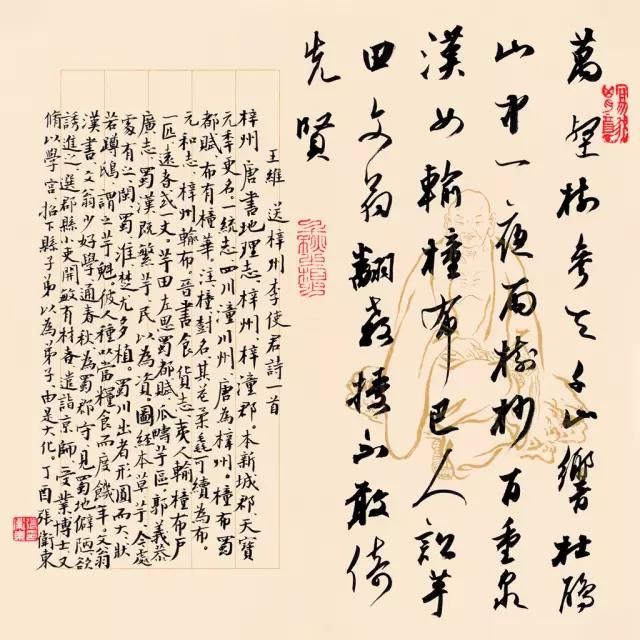 萬壑樹參天千山響杜鵑
山中一夜雨樹杪百重泉
漢女輸橦布巴人訟芋
田文翁翻教授不敢倚
先賢
王維 送梓州李使君詩一首
梓州。唐書地理志、梓州梓潼郡。本新城郡、天寶
元季更名一統志、四川潼川州、唐為梓州。橦布蜀
都賦、布有橦華。注橦對名其花柔毳可績為布。
元和志、梓州輸布。晉書食貨志、夷人輸橦布戶
一匹遠者或一丈。芋田左思蜀都賦、瓜疇芋區郭義恭
廣志、蜀漢既繁芋民以為資。圖經本草芋、今處
處有之閩蜀淮楚尤多植。蜀川出者形圓而大、狀
若蹲鴟、謂之芋魁、彼人種以當糧食而度饑年。文翁
漢書文翁少好學、通春秋為蜀郡守、見蜀地僻陋、欲
誘進之、選郡縣小吏開敏有材者、遣詣京師、受業博士又
脩以學官招下縣子弟以為弟子、由是大化。丁酉張衛東